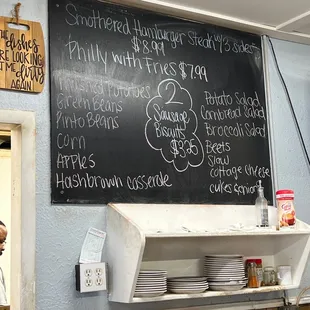 The
dishes
are
looking
at me
dirty
again
Smothered Hamburger Steak w/ 2 sides
$8.99
Philly with Fries $7.99
Mashed Potatoes
Green beans
Pinto Beans
Corn
Apples
Hashbrown casserole
2
Sausage
Biscuits
$3.25
Potato Salad
Cornbread Salad
Broccoli Salad
Beets
Slaw
cottage cheese
cukes & onions